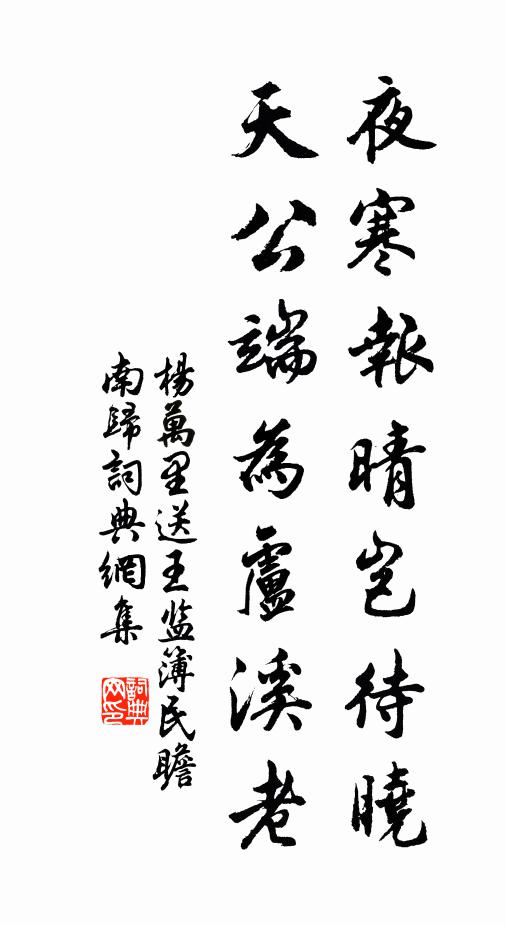 夜寒報晴豈待曉
天公端為盧溪老
楊萬里送王监簿民瞻
南歸詞典網集
詞典
网印